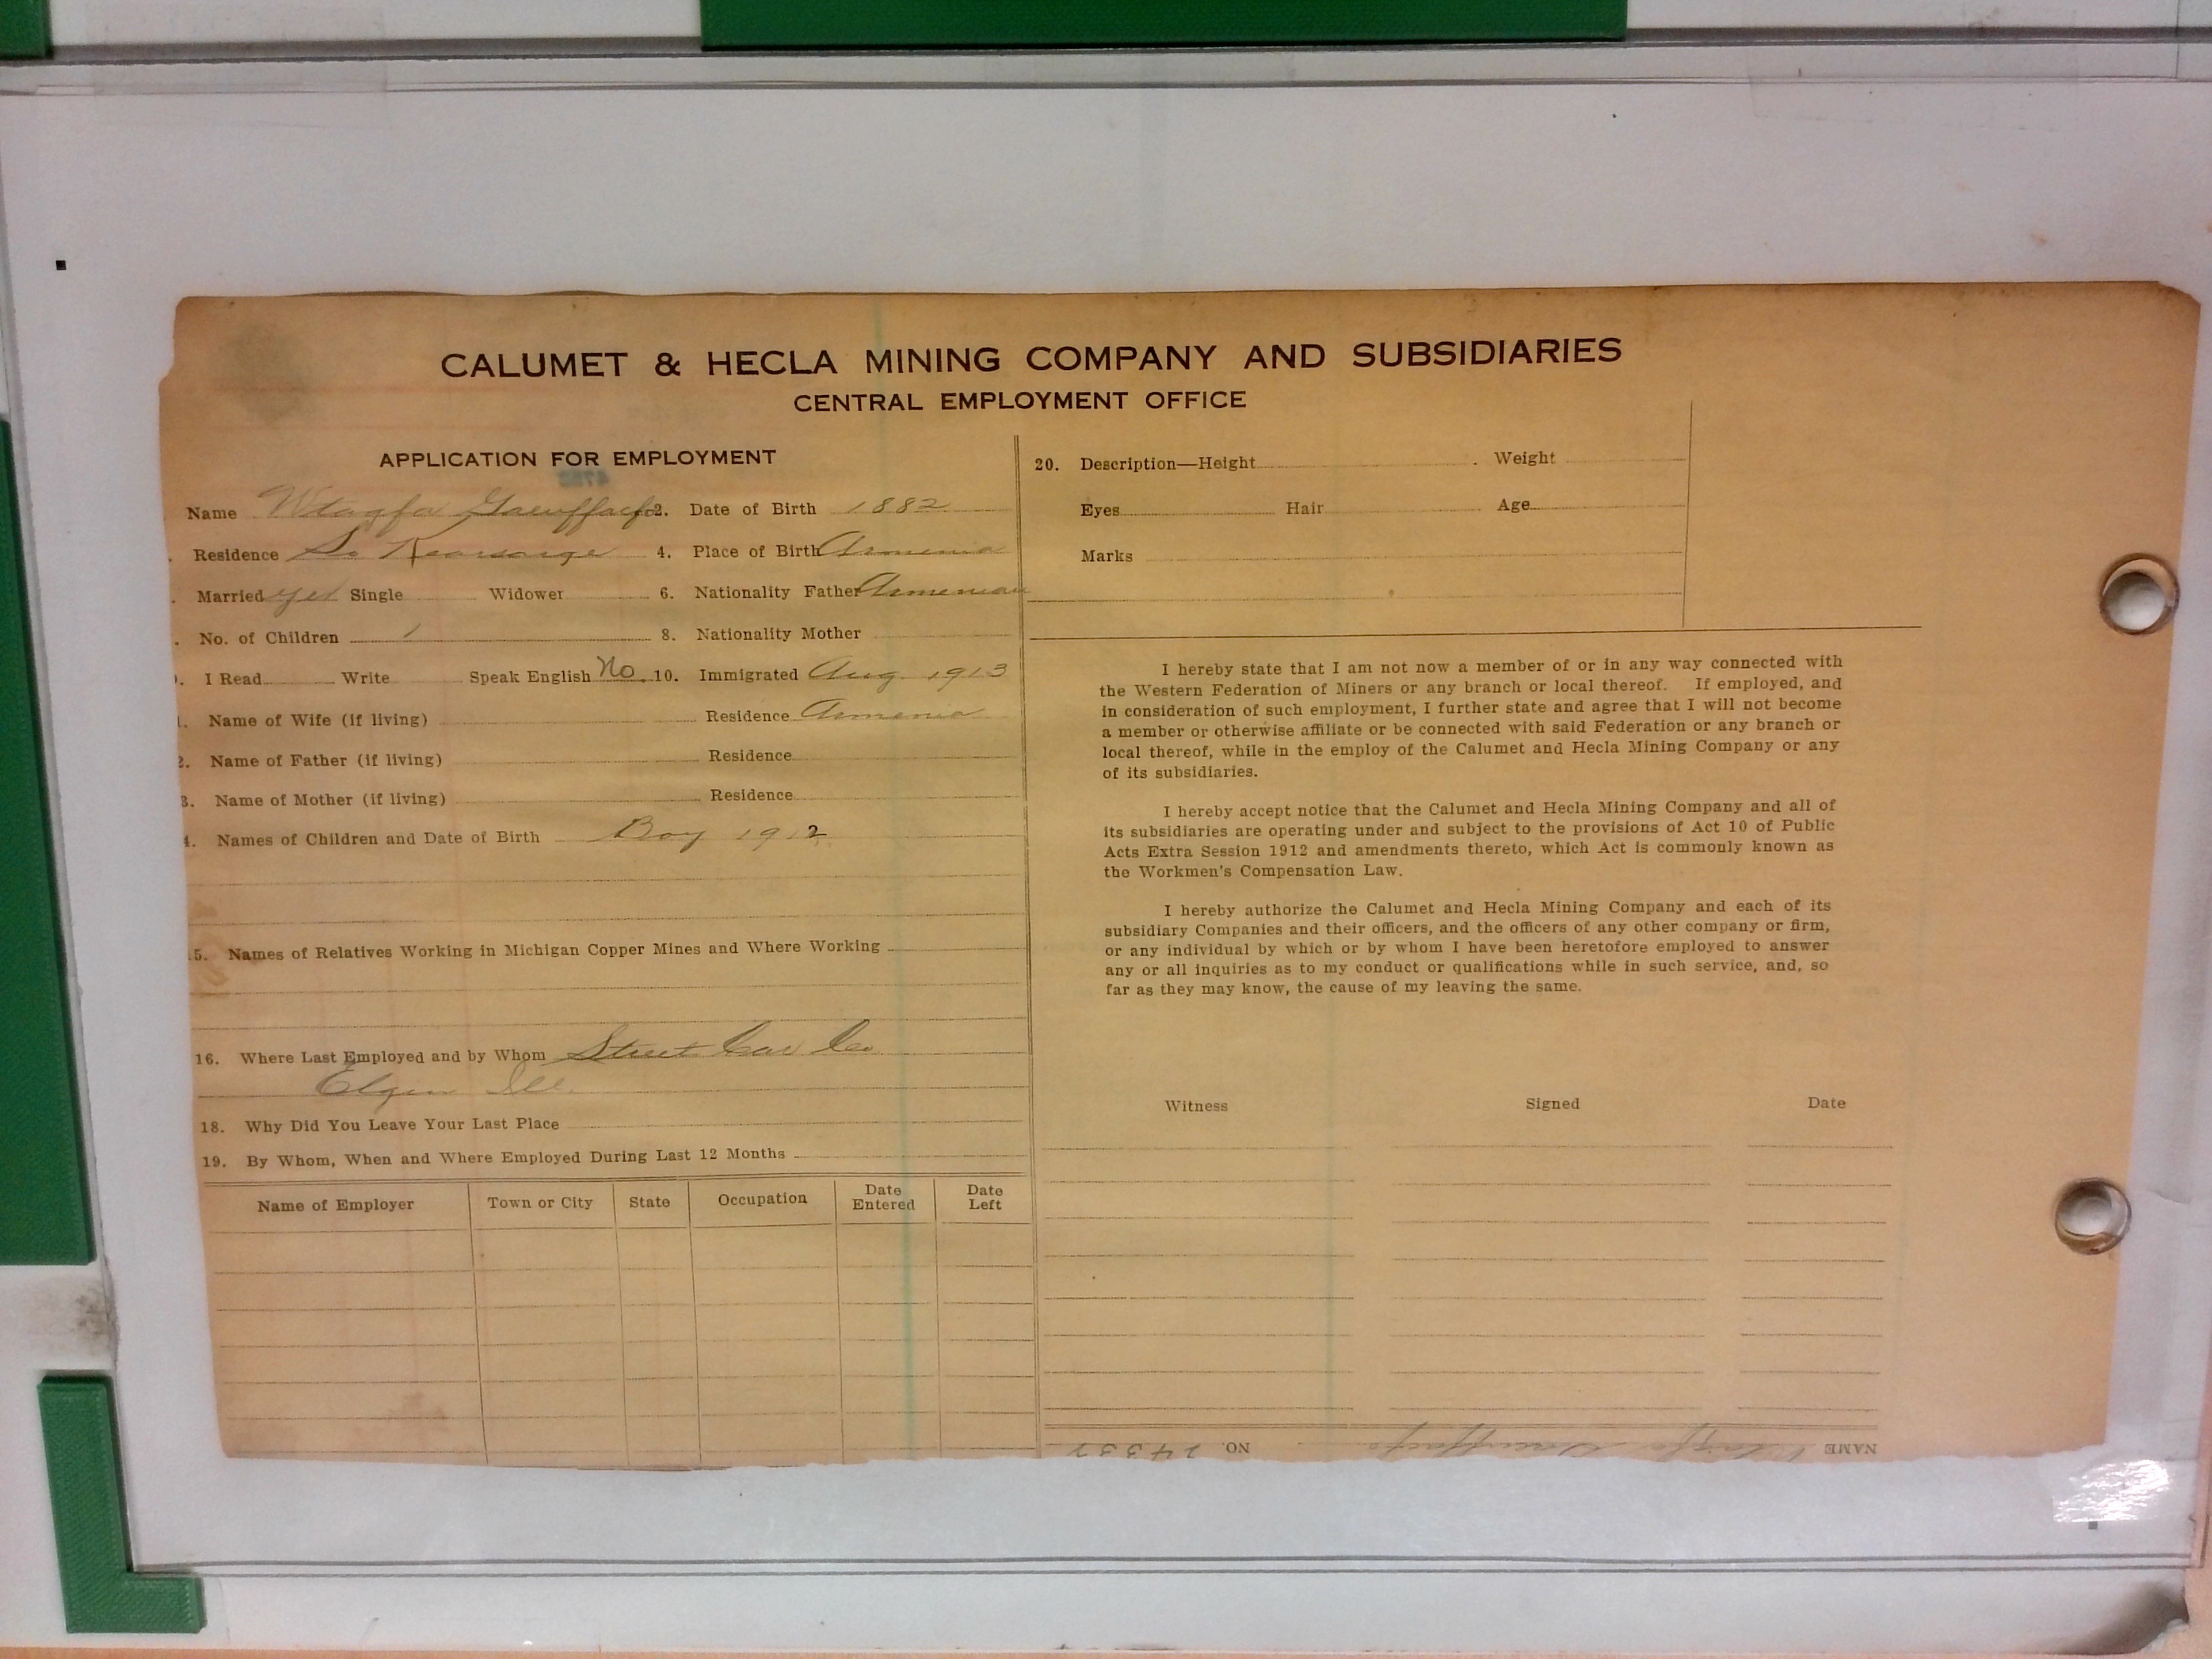 CALUMET & HECLA MINING COMPANY AND SUBSIDIARIES
CENTRAL EMPLOYMENT OFFICE
APPLICATION FOR EMPLOYMENT
Name
2. Date of Birth 1882
Residence So Kearsarge 4. Place of Birth Armenia
Married yes Single Widower 6. Nationality Father Armenian
No. of Children 1 8. Nationality Mother
I Read Write Speak English No 10. Immigrated Aug. 1913
Name of Wife (if living) Residence Armenia
2. Name of Father (if living) Residence
3. Name of Mother (if living) Residence
4. Names of Children and Date of Birth Boy 1912
15. Names of Relatives Working in Michigan Copper Mines and Where Working
16. Where Last Employed and by Whom Street Car Co
Elgin Ill.
18. Why Did You Leave Your Last Place
19. By Whom, When and Where Employed During Last 12 Months
Name of Employer Town or City State Occupation Date Entered Date Left
20. Description—Height Weight
Eyes Hair Age
Marks
I hereby state that I am not now a member of or in any way connected with
the Western Federation of Miners or any branch or local thereof. If employed, and
in consideration of such employment, I further state and agree that I will not become
a member or otherwise affiliate or be connected with said Federation or any branch or
local thereof, while in the employ of the Calumet and Hecla Mining Company or any
of its subsidiaries.
I hereby accept notice that the Calumet and Hecla Mining Company and all of
its subsidiaries are operating under and subject to the provisions of Act 10 of Public
Acts Extra Session 1912 and amendments thereto, which Act is commonly known as
the Workmen's Compensation Law.
I hereby authorize the Calumet and Hecla Mining Company and each of its
subsidiary Companies and their officers, and the officers of any other company or firm,
or any individual by which or by whom I have been heretofore employed to answer
any or all inquiries as to my conduct or qualifications while in such service, and, so
far as they may know, the cause of my leaving the same.
Witness Signed Date
NAME NO.